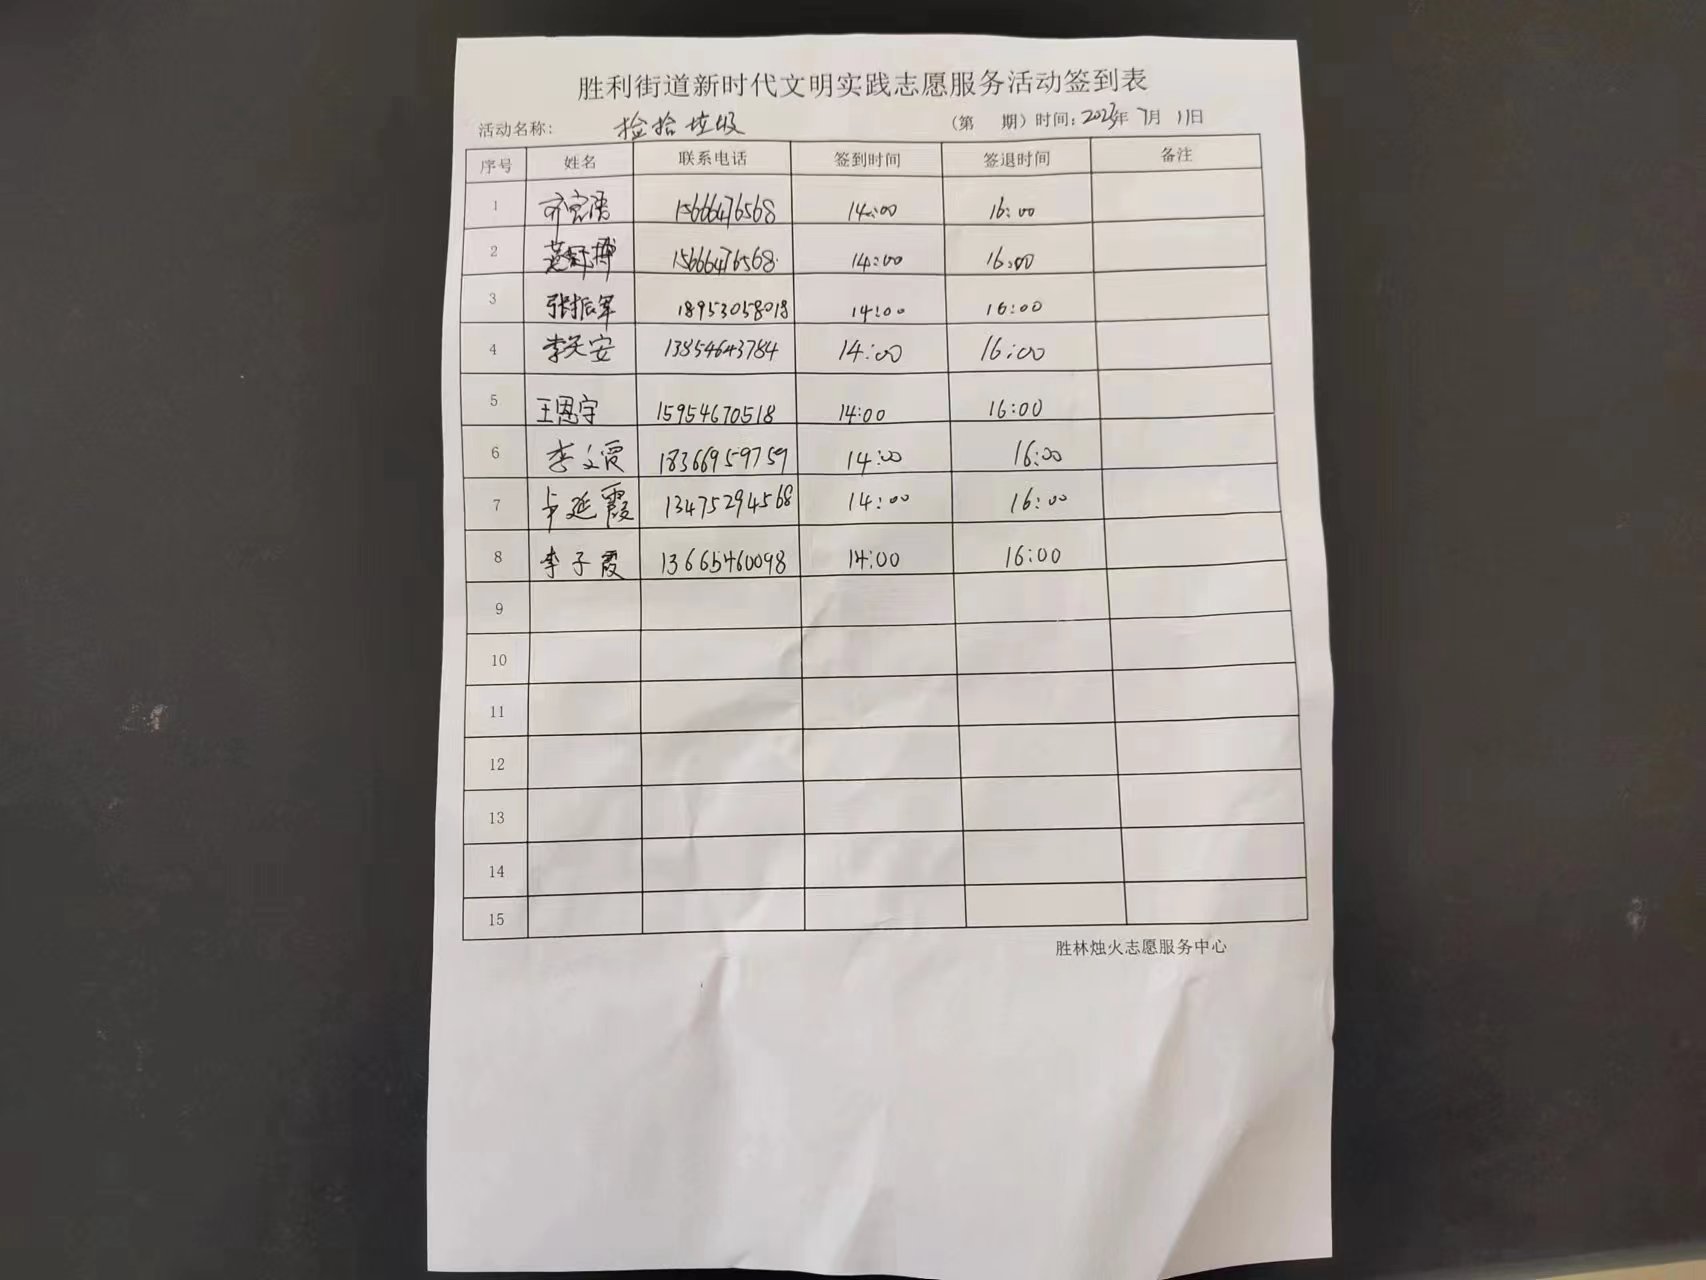 胜利街道新时代文明实践志愿服务活动签到表
活动名称: 捡拾垃圾 (第 期) 时间: 2023年 7月 11日
序号 姓名 联系电话 签到时间 签退时间 备注
1 15666476568 14:00 16:00
2 15666476568 14:00 16:00
3 张振军 18953058018 14:00 16:00
4 李天安 13854643784 14:00 16:00
5 王恩宇 15954670518 14:00 16:00
6 李文霞 18366959759 14:00 16:00
7 延霞 13475294568 14:00 16:00
8 李子霞 13665460098 14:00 16:00
9
10
11
12
13
14
15
胜林烛火志愿服务中心